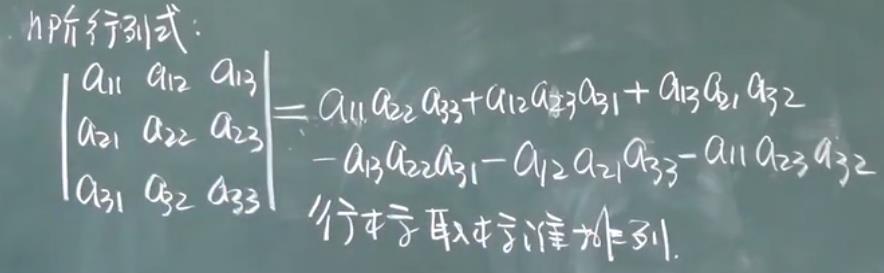 n阶行列式:
| a11 a12 a13 |
| a21 a22 a23 | = a11a22a33+a12a23a31+a13a21a32
| a31 a32 a33 | -a13a22a31-a12a21a33-a11a23a32
1)行标取标准排列.